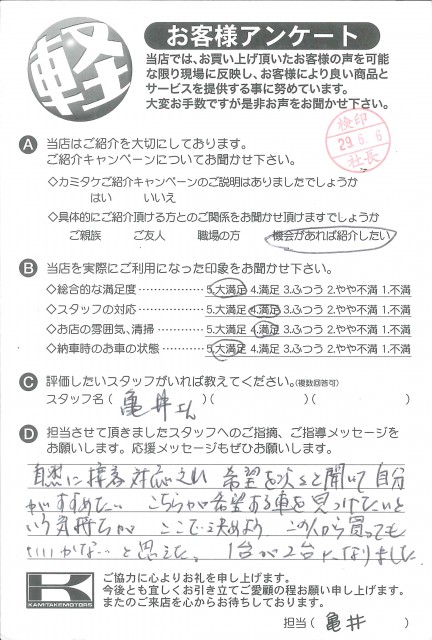 軽
お客様アンケート
当店では、お買い上げ頂いたお客様の声を可能
な限り現場に反映し、お客様により良い商品と
サービスを提供する事に努めています。
大変お手数ですが是非お声をお聞かせ下さい。
検印
29.6.6
社長
A 当店はご紹介を大切にしております。
ご紹介キャンペーンについてお聞かせ下さい。
◇カミタケご紹介キャンペーンのご説明はありましたでしょうか
はい いいえ
◇具体的にご紹介頂ける方とのご関係をお聞かせ頂けますでしょうか
ご親族 ご友人 職場の方 機会があれば紹介したい
B 当店を実際にご利用になった印象をお聞かせ下さい。
◇総合的な満足度 5.大満足 4.満足 3.ふつう 2.やや不満 1.不満
◇スタッフの対応 5.大満足 4.満足 3.ふつう 2.やや不満 1.不満
◇お店の雰囲気、清掃 5.大満足 4.満足 3.ふつう 2.やや不満 1.不満
◇納車時のお車の状態 5.大満足 4.満足 3.ふつう 2.やや不満 1.不満
C 評価したいスタッフがいれば教えてください。(複数回答可)
スタッフ名(亀井さん)( )( )
D 担当させて頂きましたスタッフへのご指摘、ご指導メッセージを
お願いします。応援メッセージもぜひお願いします。
自然に接客対応され 希望を次々と聞いて自分
がすすめたい こちらが希望する車を見つけたいと
いう気持ちが ここで決めよう この人から買っても
いいかな…と思えた。1台が2台になりました
K
KAMITAKEMOTORS
ご協力に心よりお礼を申し上げます。
今後とも宜しくお引き立てご愛顧の程お願い申し上げます。
またのご来店を心からお待ちしております。
担当(亀井)